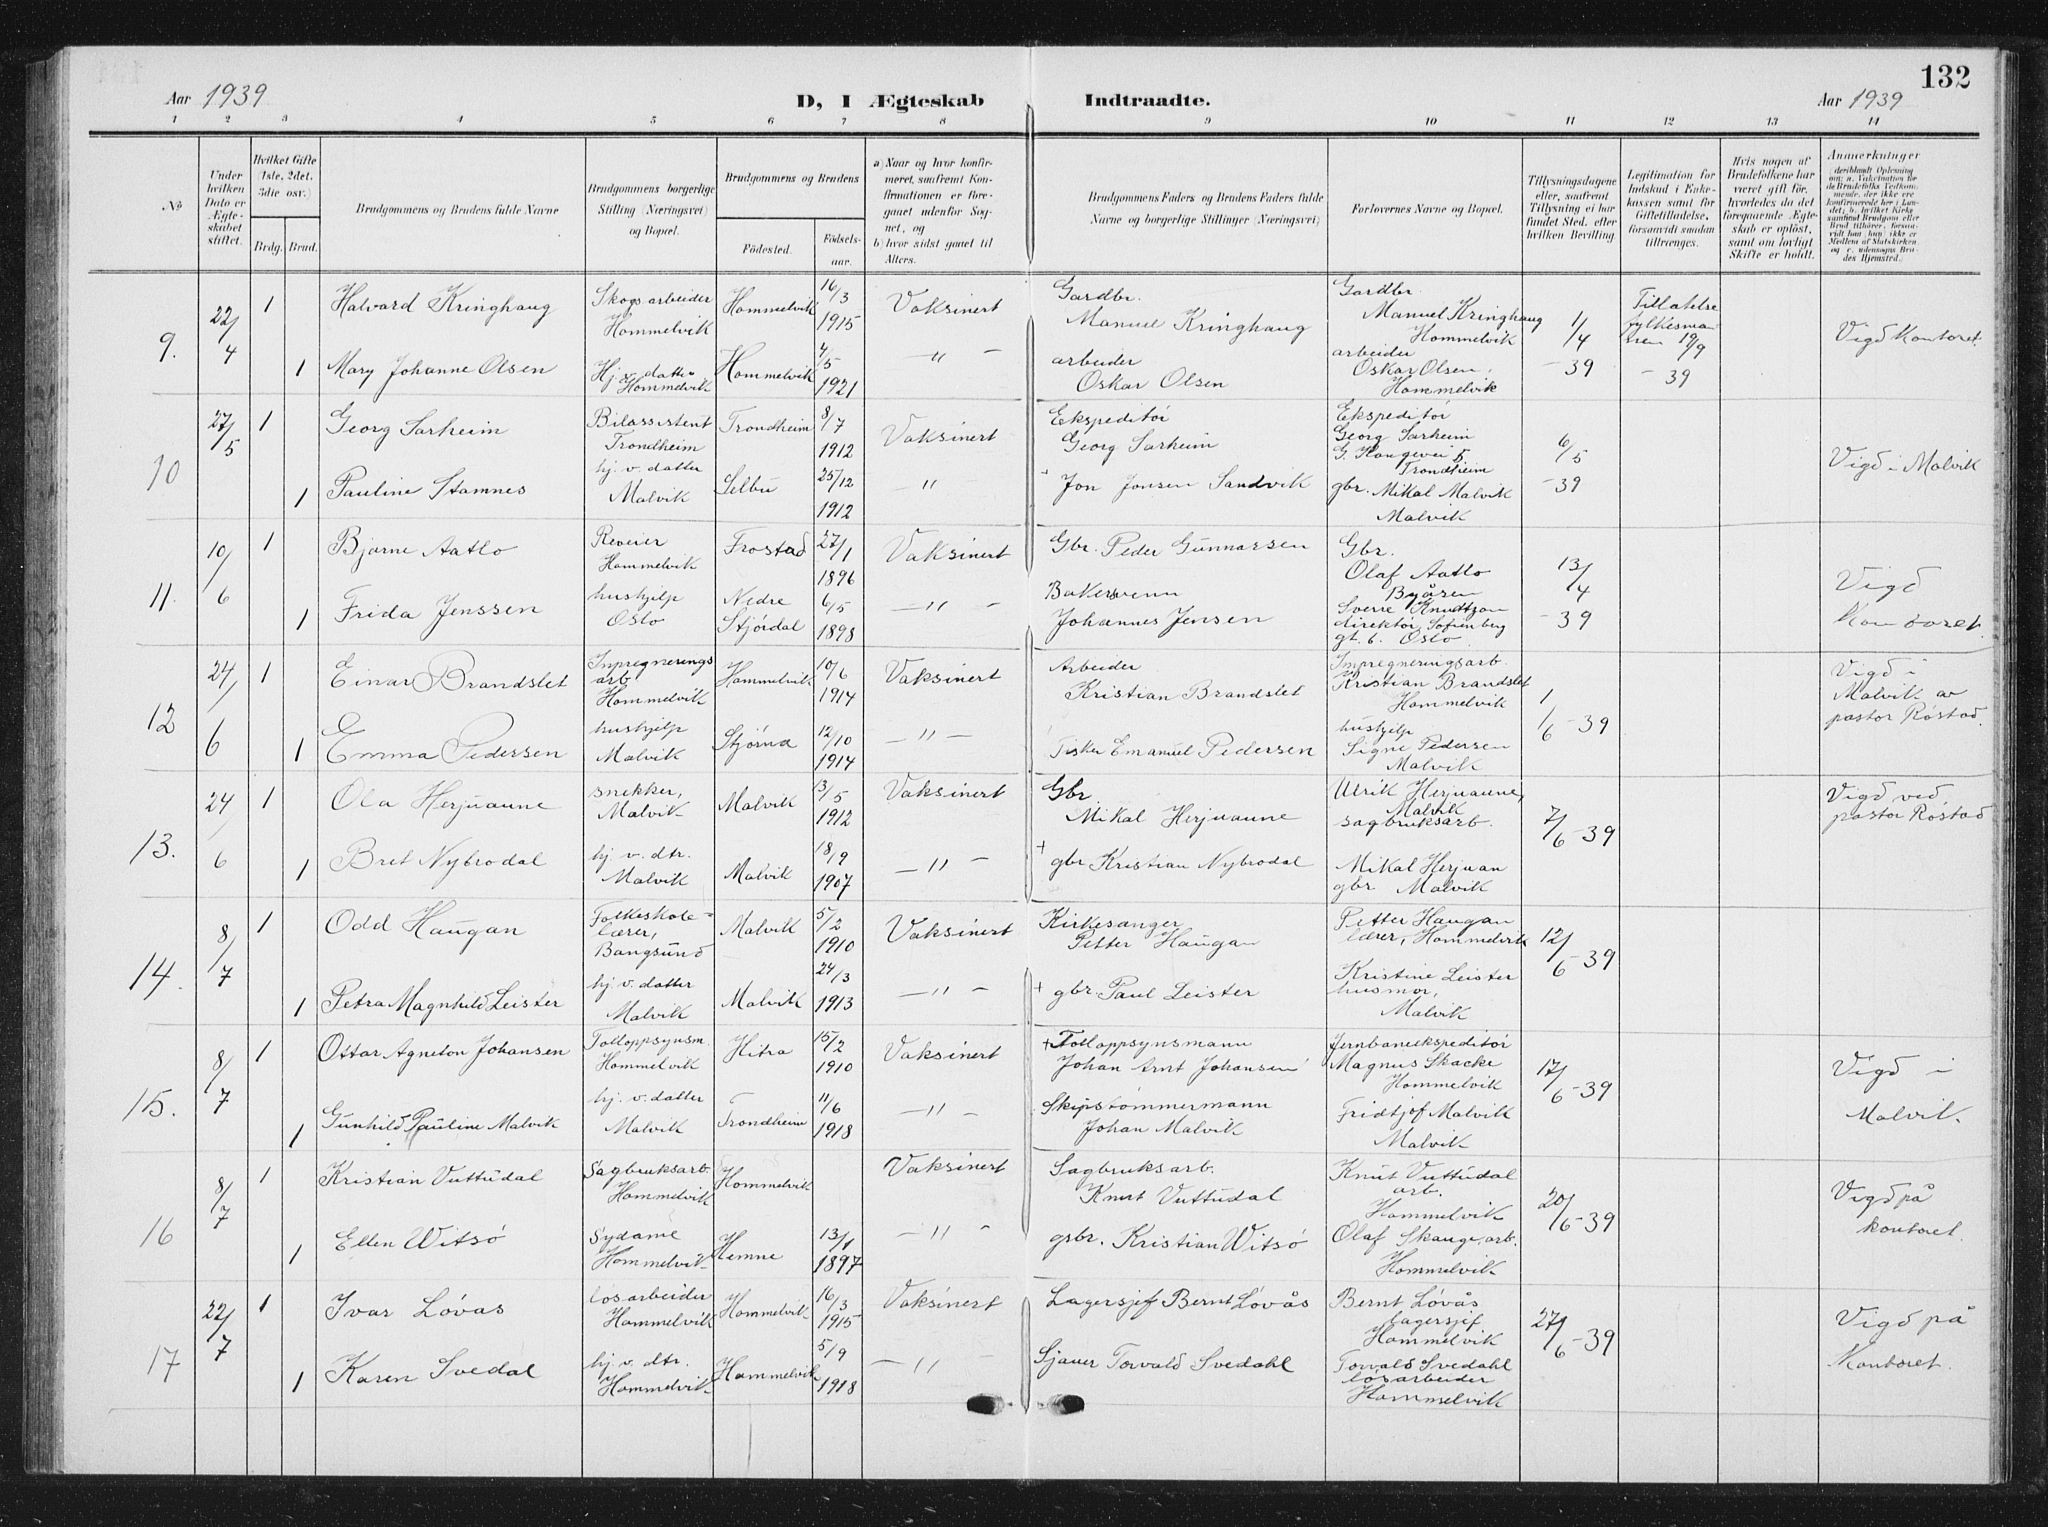 132
Aar 1939
D, I Ægteskab Indtraadte.
Aar 1939
1 2 3 4 5 6 7 8 9 10 11 12 13 14
No
Under hvilken Dato er Ægteskabet stiftet.
Hvilket Gifte (1ste, 2det, 3die osv.)
Brdg. Brud.
Brudgommens og Brudens fulde Navne
Brudgommens borgerlige Stilling (Næringsvei) og Bopæl.
Brudgommens og Brudens
Fødested. Fødsels-aar.
a) Naar og hvor konfirmeret, saafremt Konfirmationen er foregaaet udenfor Sognet, og
b) hvor sidst gaaet til Alters.
Brudgommens Faders og Brudens Faders fulde Navne og borgerlige Stillinger (Næringsvei)
Forlovernes Navne og Bopæl.
Tillysningsdagene eller, saafremt Tillysning ei har fundet Sted, efter hvilken Bevilling.
Legitimation for Indskud i Enkekassen samt for Giftetilladelse, forsaavidt saadan tiltrænges.
Hvis nogen af Brudefolkene har været gift før, hvorledes da det foregaaende Ægteskab er opløst, samt om lovligt Skifte er holdt.
Anmerkninger
9. 22/4
1 Halvard Kringhaug
Skogsarbeider Hommelvik
Hommelvik 16/3 1915
Vaksinert
Gardbr. Manuel Kringhaug
Gardbr. Manuel Kringhaug Hommelvik
1/4 -39
Tillatelse fylkesmannen 19/9 -39
Vigd Kontoret.
1 Mary Johanne Olsen
Hj. v. datter Hommelvik
Hommelvik 4/5 1921
— " —
arbeider Oskar Olsen
arbeider Oskar Olsen, Hommelvik
10 27/5
1 Georg Sarheim
Bilassistent Trondheim
Trondheim 8/7 1912
Vaksinert
Ekspeditór Georg Sarheim
Ekspeditór Georg Sarheim
G. Kongevei 5 Trondheim
6/5 -39
Vigd i Malvik
1 Pauline Stamnes
hj. v. datter Malvik
Selbu 25/12 1912
— " —
+ Jon Jonsen Sandvik
gbr. Mikal Malvik Malvik
11. 10/6
1 Bjarne Aatlo
Reveier Hommelvik
Frostad 27/1 1896
Vaksinert
Gbr. Peder Gunnarsen
Gbr. Olaf Aatlo Byåsen
13/4 -39
Vigd Kontoret.
1 Frida Jenssen
hushjelp Oslo
Nedre Stjórdal 6/5 1898
— " —
Bakersvenn Johannes Jensen
Sverre Knudtzon direktór Sofienberg gt. 6. Oslo.
12 24/6
1 Einar Brandslet
Inpregnerings arb. Hommelvik
Hommelvik 10/6 1914
Vaksinert
Arbeider Kristian Brandslet
Impregneringsarb. Kristian Brandslet Hommelvik
1/6 -39
Vigd i Malvik av pastor Róstad.
1 Emma Pedersen
hushjelp Malvik
Stjórna 12/10 1914
— " —
Fisker Emanuel Pedersen
hushjelp Signe Pedersen Malvik
13. 24/6
1 Ola Herjuaune
snekker, Malvik
Malvik 13/5 1912
Vaksinert
Gbr. Mikal Herjuaune
Ulrik Herjuaune, Malvik sagbruksarb.
7/6 -39
Vigd ved pastor Róstad
1 Bret Nybrodal
hj. v. dtr. Malvik
Malvik 18/9 1907
— " —
+ gbr Kristian Nybrodal
Mikal Herjuan gbr Malvik
14. 8/7
1 Odd Haugan
Folkeskole-lærer, Bangsund
Malvik 5/2 1910
Vaksinert
Kirkesanger Petter Haugan
Petter Haugan lærer, Hommelvik
12/6 -39
1 Petra Magnhild Leister
hj. v. datter Malvik
Malvik 24/3 1913
— " —
+ gbr. Paul Leister
Kristine Leister husmor, Malvik
15. 8/7
1 Ottar Agneton Johansen
Tolloppsynsm Hommelvik
Hitra 15/2 1910
Vaksinert
+ Tolloppsynsmann Johan Arnt Johansen
Jernbaneekspeditór Magnus Skacke Hommelvik
17/6 -39
Vigd i Malvik.
1 Gunhild Pauline Malvik
hj. v. datter Malvik
Trondheim 11/6 1918
— " —
Skipstómmermann Johan Malvik
Fridtjof Malvik Malvik
16 8/7
1 Kristian Vuttudal
Sagbruksarb. Hommelvik
Hommelvik
Vaksinert
Sagbruksarb. Knut Vuttudal
Knut Vuttudal arb. Hommelvik
20/6 -39
Vigd på kontoret.
1 Ellen Witsó
Sydame Hommelvik
Hemne 13/1 1897
— " —
grbr. Kristian Witsó
Olaf Skauge, arb. Hommelvik
17 22/7
1 Ivar Lóvås
lósarbeider Hommelvik
Hommelvik 16/3 1915
Vaksinert
Lagersjef Bernt Lóvås
Bernt Lóvås lagersjef Hommelvik
27/6 -39
Vigd på Kontoret.
1 Karen Svedal
hj. v. dtr. Hommelvik
Hommelvik 5/9 1918
— " —
Sjauer Torvald Svedahl
Torvald Svedahl lósarbeider Hommelvik